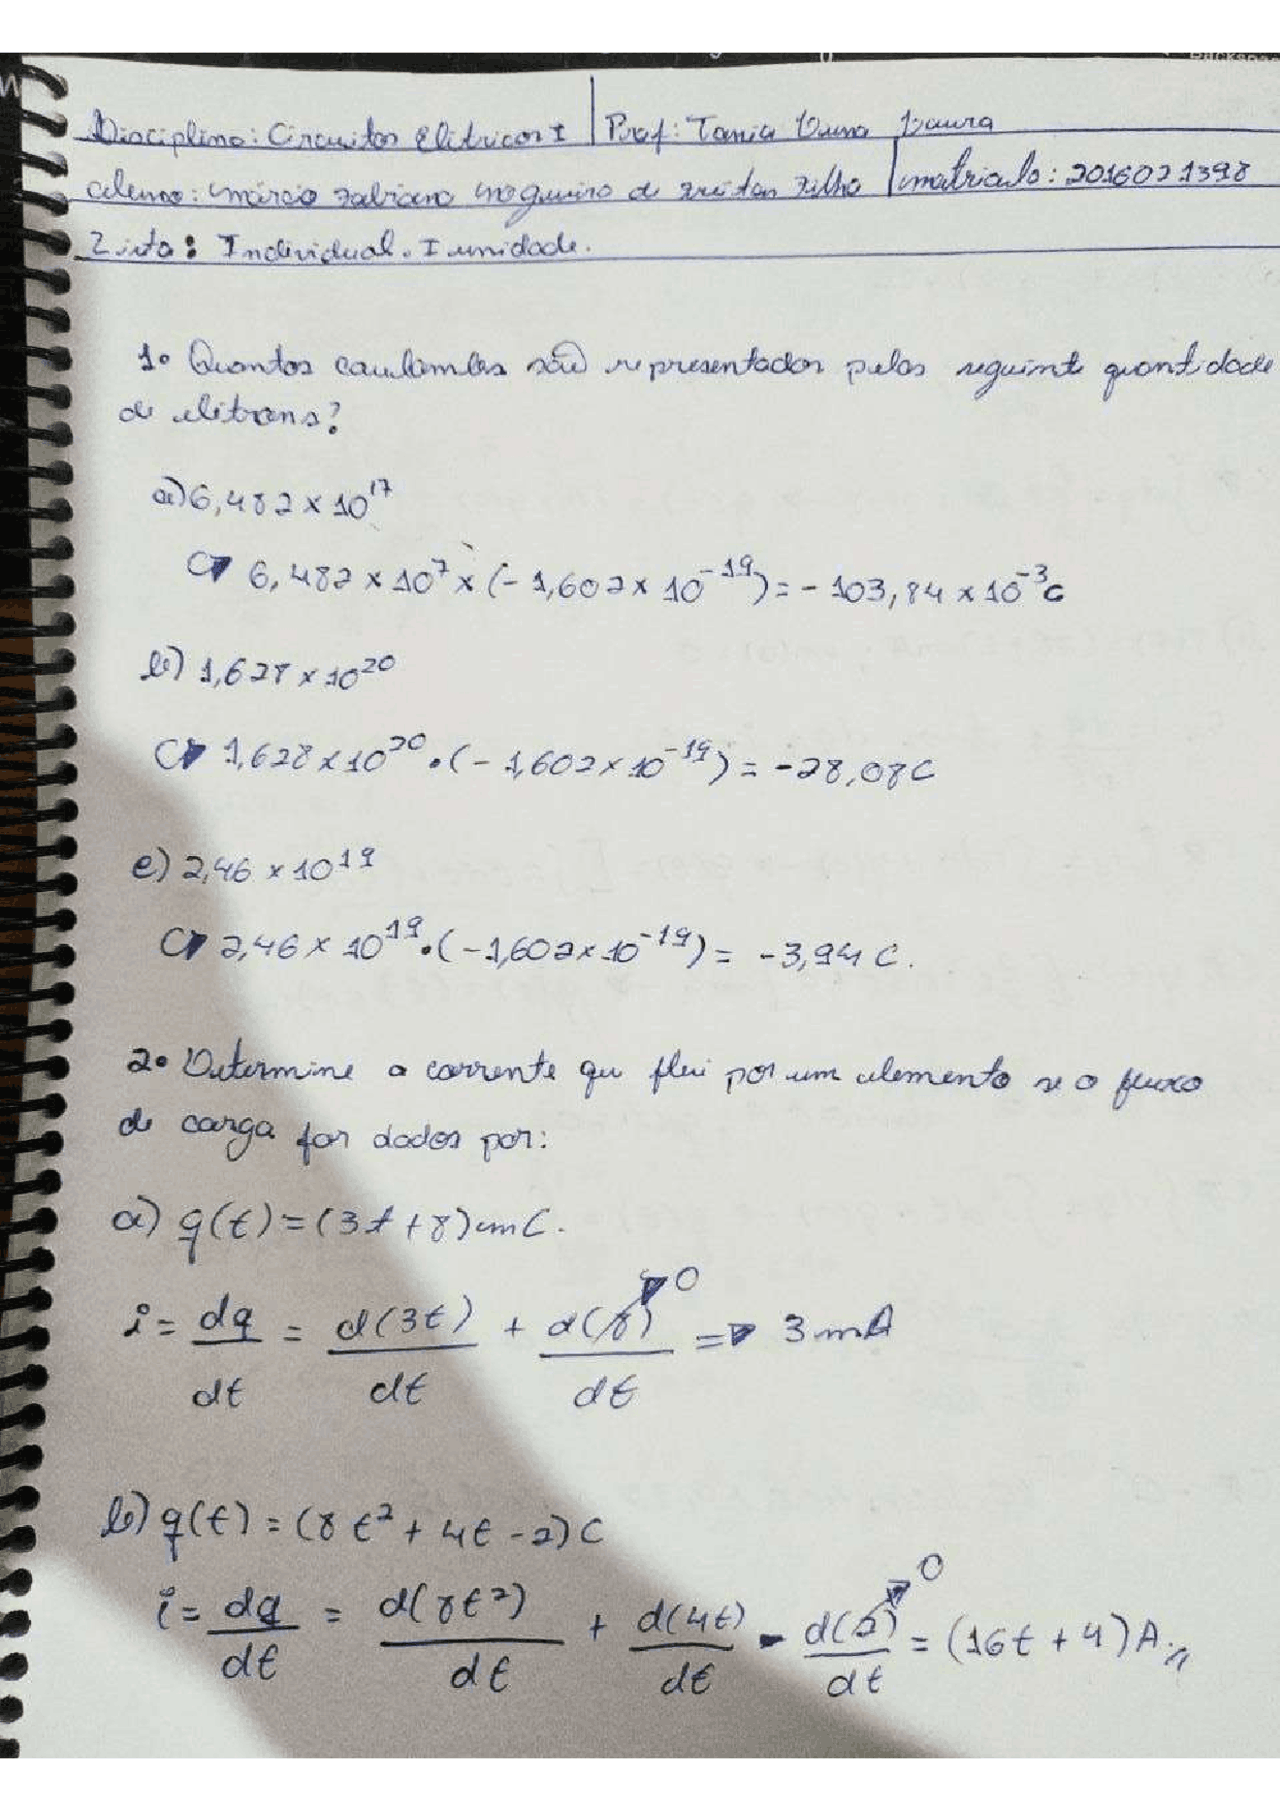 Disciplina: Circuitos Elétricos I | Prof: Tania Luna Laura
Aluno: Márcio Fabiano Nogueira de Freitas Filho | matricula: 2016021398
Lista: Individual. I unidade.
1. Quantos coulombs são representados pelas seguinte quantidade
de elétrons?
a) 6,482 x 10^17
6,482 x 10^7 x (-1,602 x 10^-19) = -103,84 x 10^-3 C
b) 1,628 x 10^20
1,628 x 10^20 . (-1,602 x 10^-19) = -28,08 C
c) 2,46 x 10^19
2,46 x 10^19 . (-1,602 x 10^-19) = -3,94 C.
2. Determine a corrente que flui por um elemento se o fluxo
de carga for dados por:
a) q(t) = (3t + 8) mC.
i = dq/dt = d(3t)/dt + d(8)/dt 0 => 3 mA
b) q(t) = (8t² + 4t - 2) C
i = dq/dt = d(8t²)/dt + d(4t)/dt - d(2)/dt 0 = (16t + 4) A